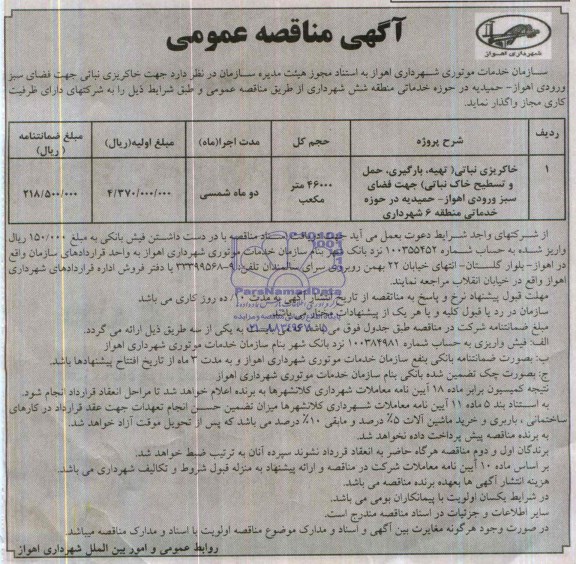 آگهی مناقصه عمومی
شهرداری اهواز
سازمان خدمات موتوری شهرداری اهواز به استناد مجوز هیئت مدیره سازمان در نظر دارد جهت خاکریزی نباتی جهت فضای سبز
ورودی اهواز- حمیدیه در حوزه خدماتی منطقه شش شهرداری از طریق مناقصه عمومی و طبق شرایط ذیل را به شرکتهای دارای ظرفیت
کاری مجاز واگذار نماید.
ردیف شرح پروژه حجم کل مدت اجرا(ماه) مبلغ اولیه(ریال) مبلغ ضمانتنامه
(ریال)
۱ خاکریزی نباتی( تهیه، بارگیری، حمل
و تسطیح خاک نباتی) جهت فضای
سبز ورودی اهواز- حمیدیه در حوزه
خدماتی منطقه ۶ شهرداری
۴۶۰۰۰ متر
مکعب
دو ماه شمسی ۴/۳۷۰/۰۰۰/۰۰۰ ۲۱۸/۵۰۰/۰۰۰
از شرکتهای واجد شرایط دعوت بعمل می آید جهت دریافت اسناد مناقصه با در دست داشتن فیش بانکی به مبلغ ۱۵۰/۰۰۰ ریال
واریز شده به حساب شماره ۱۰۰۳۵۵۴۵۲ نزد بانک شهر بنام سازمان خدمات موتوری شهرداری اهواز به واحد قراردادهای سازمان واقع
در اهواز- بلوار گلستان- انتهای خیابان ۲۲ بهمن روبروی سرای سالمندان تلفن: ۹-۳۳۳۹۹۵۶۸ یا دفتر فروش اداره قراردادهای شهرداری
اهواز واقع در خیابان انقلاب مراجعه نمایند.
مهلت قبول پیشنهاد نرخ و پاسخ به مناقصه از تاریخ انتشار آگهی به مدت ۱۰/ ده روز کاری می باشد
سازمان در رد یا قبول کلیه و یا هر یک از پیشنهادات مختار می باشد.
مبلغ ضمانتنامه شرکت در مناقصه طبق جدول فوق می باشد که می بایست به یکی از سه طریق ذیل ارائه می گردد.
الف: فیش واریزی به حساب شماره ۱۰۰۳۸۴۹۸۱ نزد بانک شهر بنام سازمان خدمات موتوری شهرداری اهواز
ب: بصورت ضمانتنامه بانکی بنفع سازمان خدمات موتوری شهرداری اهواز و به مدت ۳ ماه از تاریخ افتتاح پیشنهادها باشد.
ج: بصورت چک تضمین شده بانکی بنام سازمان خدمات موتوری شهرداری اهواز
نتیجه کمیسیون برابر ماده ۱۸ آیین نامه معاملات شهرداری کلانشهرها به برنده اعلام خواهد شد تا مراحل انعقاد قرارداد انجام شود.
به استناد بند ۵ ماده ۱۱ آیین نامه معاملات شهرداری کلانشهرها میزان تضمین حسن انجام تعهدات جهت عقد قرارداد در کارهای
ساختمانی ، باربری و خرید ماشین آلات ۵٪ درصد و مابقی ۱۰٪ درصد می باشد که پس از تحویل موقت آزاد خواهد شد.
به برنده مناقصه پیش پرداخت داده نخواهد شد.
برندگان اول و دوم مناقصه هرگاه حاضر به انعقاد قرررداد نشوند سپرده آنان به ترتیب ضبط خواهد شد.
بر اساس ماده ۱۰ آیین نامه معاملات شرکت در مناقصه و ارائه پیشنهاد به منزله قبول شروط و تکالیف شهرداری می باشد.
هزینه انتشار آگهی ها بعهده برنده مناقصه می باشد.
در شرایط یکسان اولویت با پیمانکاران بومی می باشد.
سایر اطلاعات و جزئیات در اسناد مناقصه مندرج است.
در صورت وجود هرگونه مغایرت بین آگهی و اسناد و مدارک موضوع مناقصه اولویت با اسناد و مدارک مناقصه میباشد.
روابط عمومی و امور بین الملل شهرداری اهواز
ParsNamadData